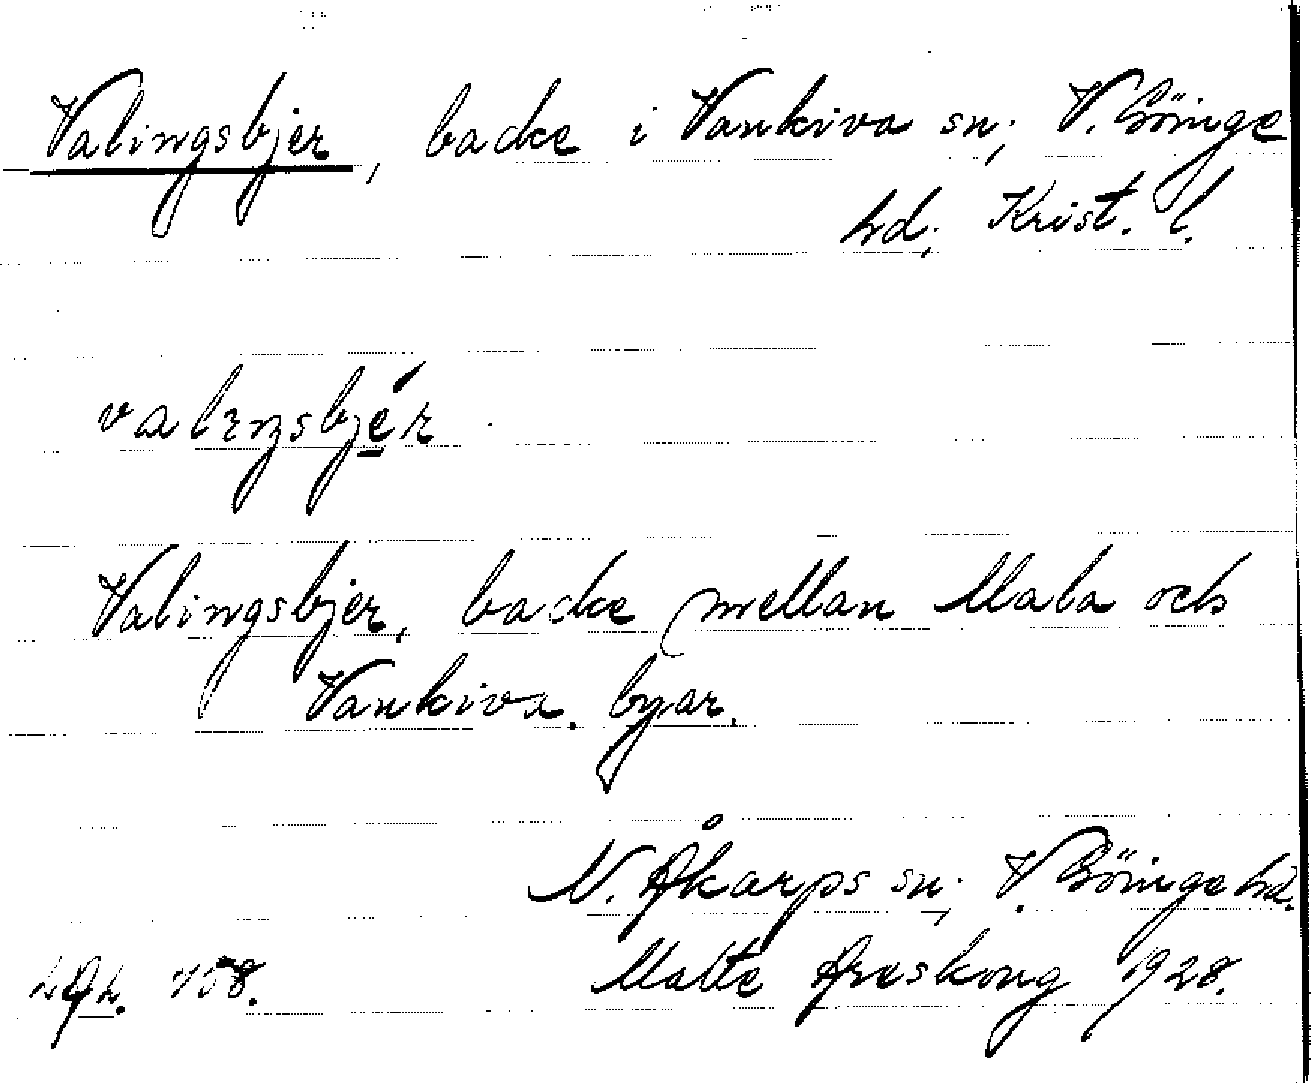 Valingsbjer, backe i Vankiva sn; V. Göinge
hd; Krist. l.
valıŋsbjér
Valingsbjer, backe mellan Mala och
Vankiva. byar.
N. Åkarps sn; V. Göinge hd.
Malte Areskoug 1928.